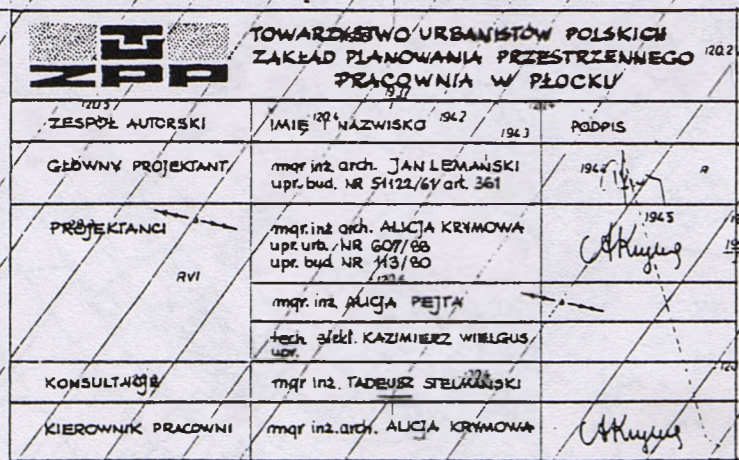 TUP
ZPP
TOWARZYSTWO URBANISTÓW POLSKICH
ZAKŁAD PLANOWANIA PRZESTRZENNEGO
PRACOWNIA W PŁOCKU
120.2
1937
120.3
120.4
ZESPÓŁ AUTORSKI IMIĘ I NAZWISKO 1942 1943 PODPIS
GŁÓWNY PROJEKTANT mgr inż. arch. JAN LEMAŃSKI
upr. bud. NR 51122/61 art. 361
1944
R
PROJEKTANCI mgr. inż. arch. ALICJA KRYMOWA
upr. urb. NR 607/88
upr. bud. NR 113/80
1945
AKrymowa
RVI
mgr. inż. ALICJA PEJTA
tech. elekt. KAZIMIERZ WIELGUS
upr.
KONSULTACJE mgr inż. TADEUSZ STELMAŃSKI
KIEROWNIK PRACOWNI mgr inż. arch. ALICJA KRYMOWA AKrymowa